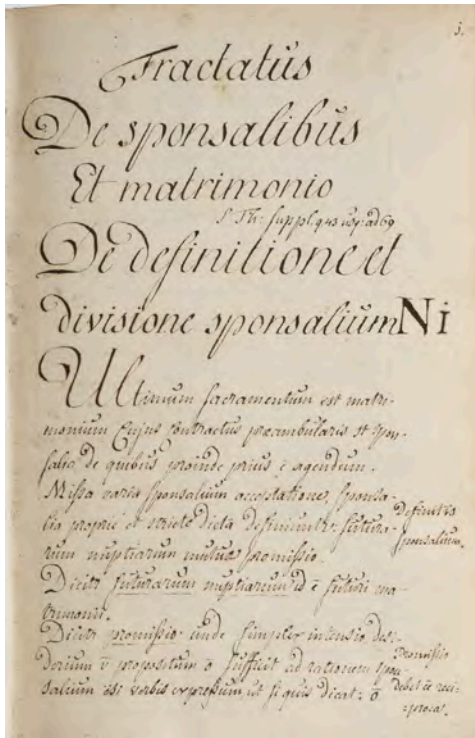 1.
Tractatus
De sponsalibus
Et matrimonio
S. Th: suppl. q 43 usq: ad 69
De definitione et
divisione sponsalium Ni
Ultimum sacramentum est matri-
monium Cujus contractus præambularis st spon-
salia de quibus proinde prius ē agendum.
Missa varia sponsalium acceptatione, sponsa-
lia proprie et stricte dicta definiuntr: futura-
rum nuptiarum mutua promissio.
Definitio
sponsalium.
Dicitr futurarum nuptiarum id ē futuri ma-
trimonii.
Dicitr promissio unde simplex intensio desi-
derium v̄ propositum ō sufficit ad rationem spon-
salium etsi verbis expressum, ut si quis dicat: ō
Promissio
debet ēē reci-
proca.